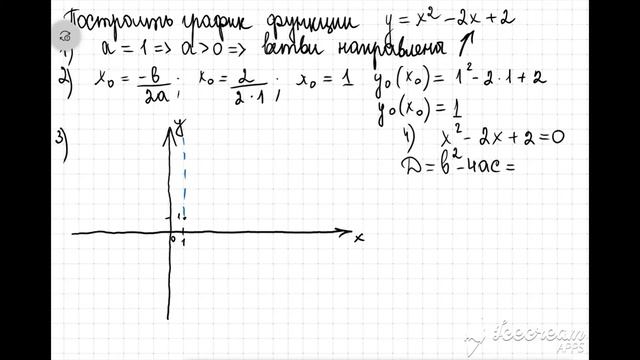 Построить график функции y = x² - 2x + 2
1) a = 1 => a > 0 => ветви направлены ↗
2) x₀ = -b/2a ; x₀ = 2/2·1 ; x₀ = 1 y₀(x₀) = 1² - 2·1 + 2
y₀(x₀) = 1
3)
4) x² - 2x + 2 = 0
D = b² - 4ac =
y
1
0 1 x
Icecream
APPS